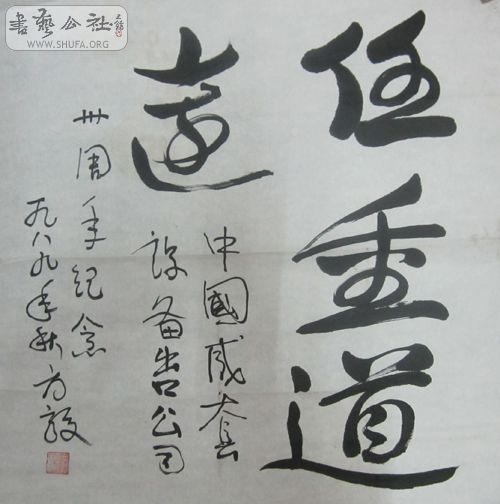 書藝公社
WWW.SHUFA.ORG
任重道
遠
中國成套
設备出口公司
卅周年纪念
一九八九年秋方毅